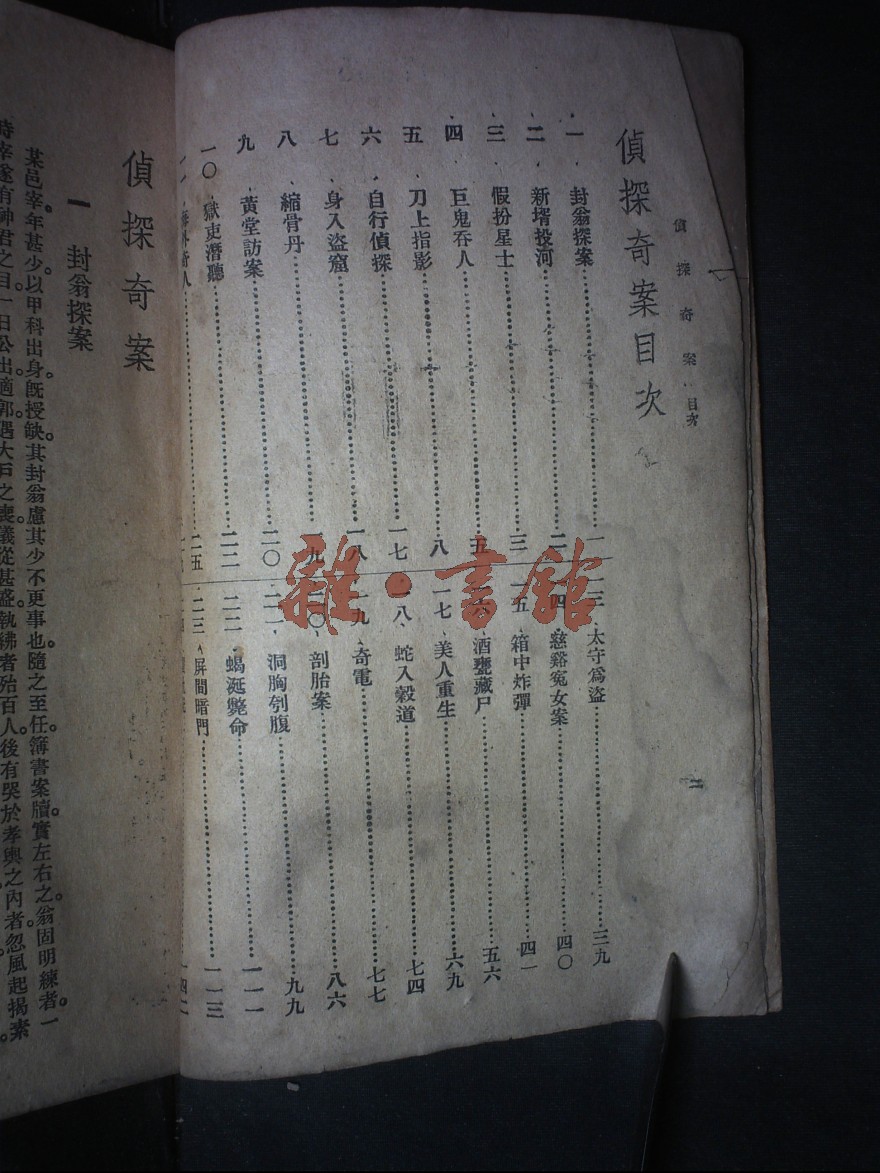 偵探奇案 目次
偵探奇案目次
一、封翁探案……一
二、新壻投河……二
三、假扮星士……三
四、巨鬼吞人……五
五、刀上指影……八
六、自行偵探……一七
七、身入盜窟……一八
八、縮骨丹……一九
九、黃堂訪案……二〇
一〇、獄吏潛聽……二二
二五
太守爲盜……三九
慈谿寃女案……四〇
一五、箱中炸彈……四一
酒甕藏尸……五六
一七、美人重生……六九
一八、蛇入穀道……七四
一九、奇電……七七
二〇、剖胎案……八六
二一、洞胸刳腹……九九
二二、蝎涎斃命……一一一
二三、屏間暗門……一一三
一四二
二
雜·書館
偵探奇案
一 封翁探案
某邑宰年甚少。以甲科出身。旣授缺。其封翁慮其少不更事也。隨之至任。簿書案牘實左右之。翁固明練者。一
時宰遂有神君之目。一日公出。適郭。遇大戶之喪。儀從甚盛。執紼者殆百人。後有哭於孝輿之內者。忽風起揭素